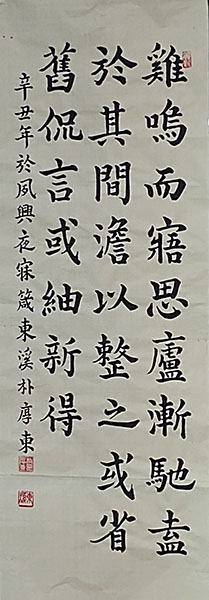 雞鳴而寤思慮漸馳盍
於其間澹以整之或省
舊諐或紬新得
辛丑年於夙興夜寐箴東溪朴厚東